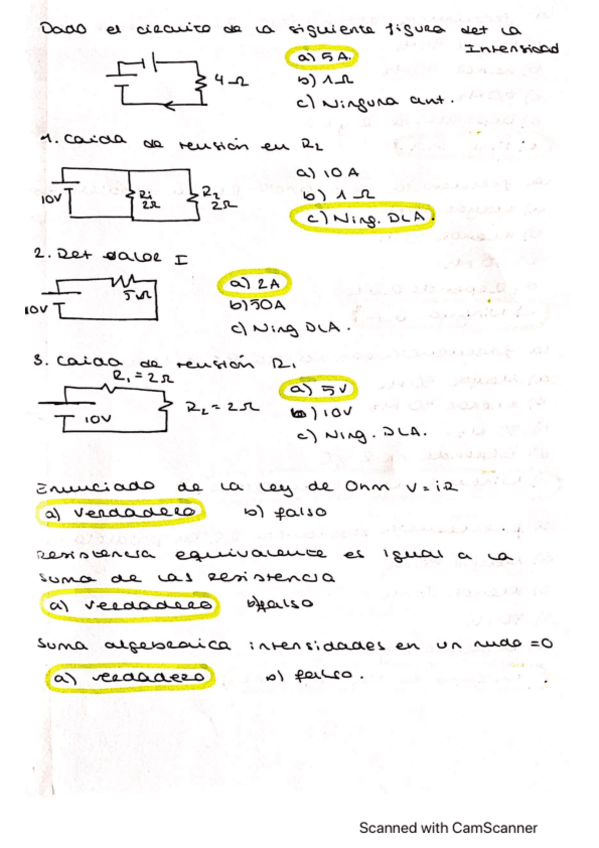 Dado el circuito de la siguiente figura det la
Intensidad
a) 5 A.
4Ω
b) 1Ω
c) Ninguna ant.
1. Caida de tensión en R2
a) 10 A
10V
R1
2Ω
R2
2Ω
b) 1 Ω
c) Ning. DLA.
2. Det valor I
5Ω
10V
a) 2A
b) 50A
c) Ning DLA.
3. Caida de tensión R1
R1 = 2Ω
a) 5V
R2 = 2Ω
b) 10V
10V
c) Ning. DLA.
Enunciado de la Ley de Ohm V = iR
a) verdadero b) falso
Resistencia equivalente es igual a la
suma de las resistencia
a) verdadero b) falso
Suma algebraica intensidades en un nudo =0
a) verdadero b) falso.
Scanned with CamScanner